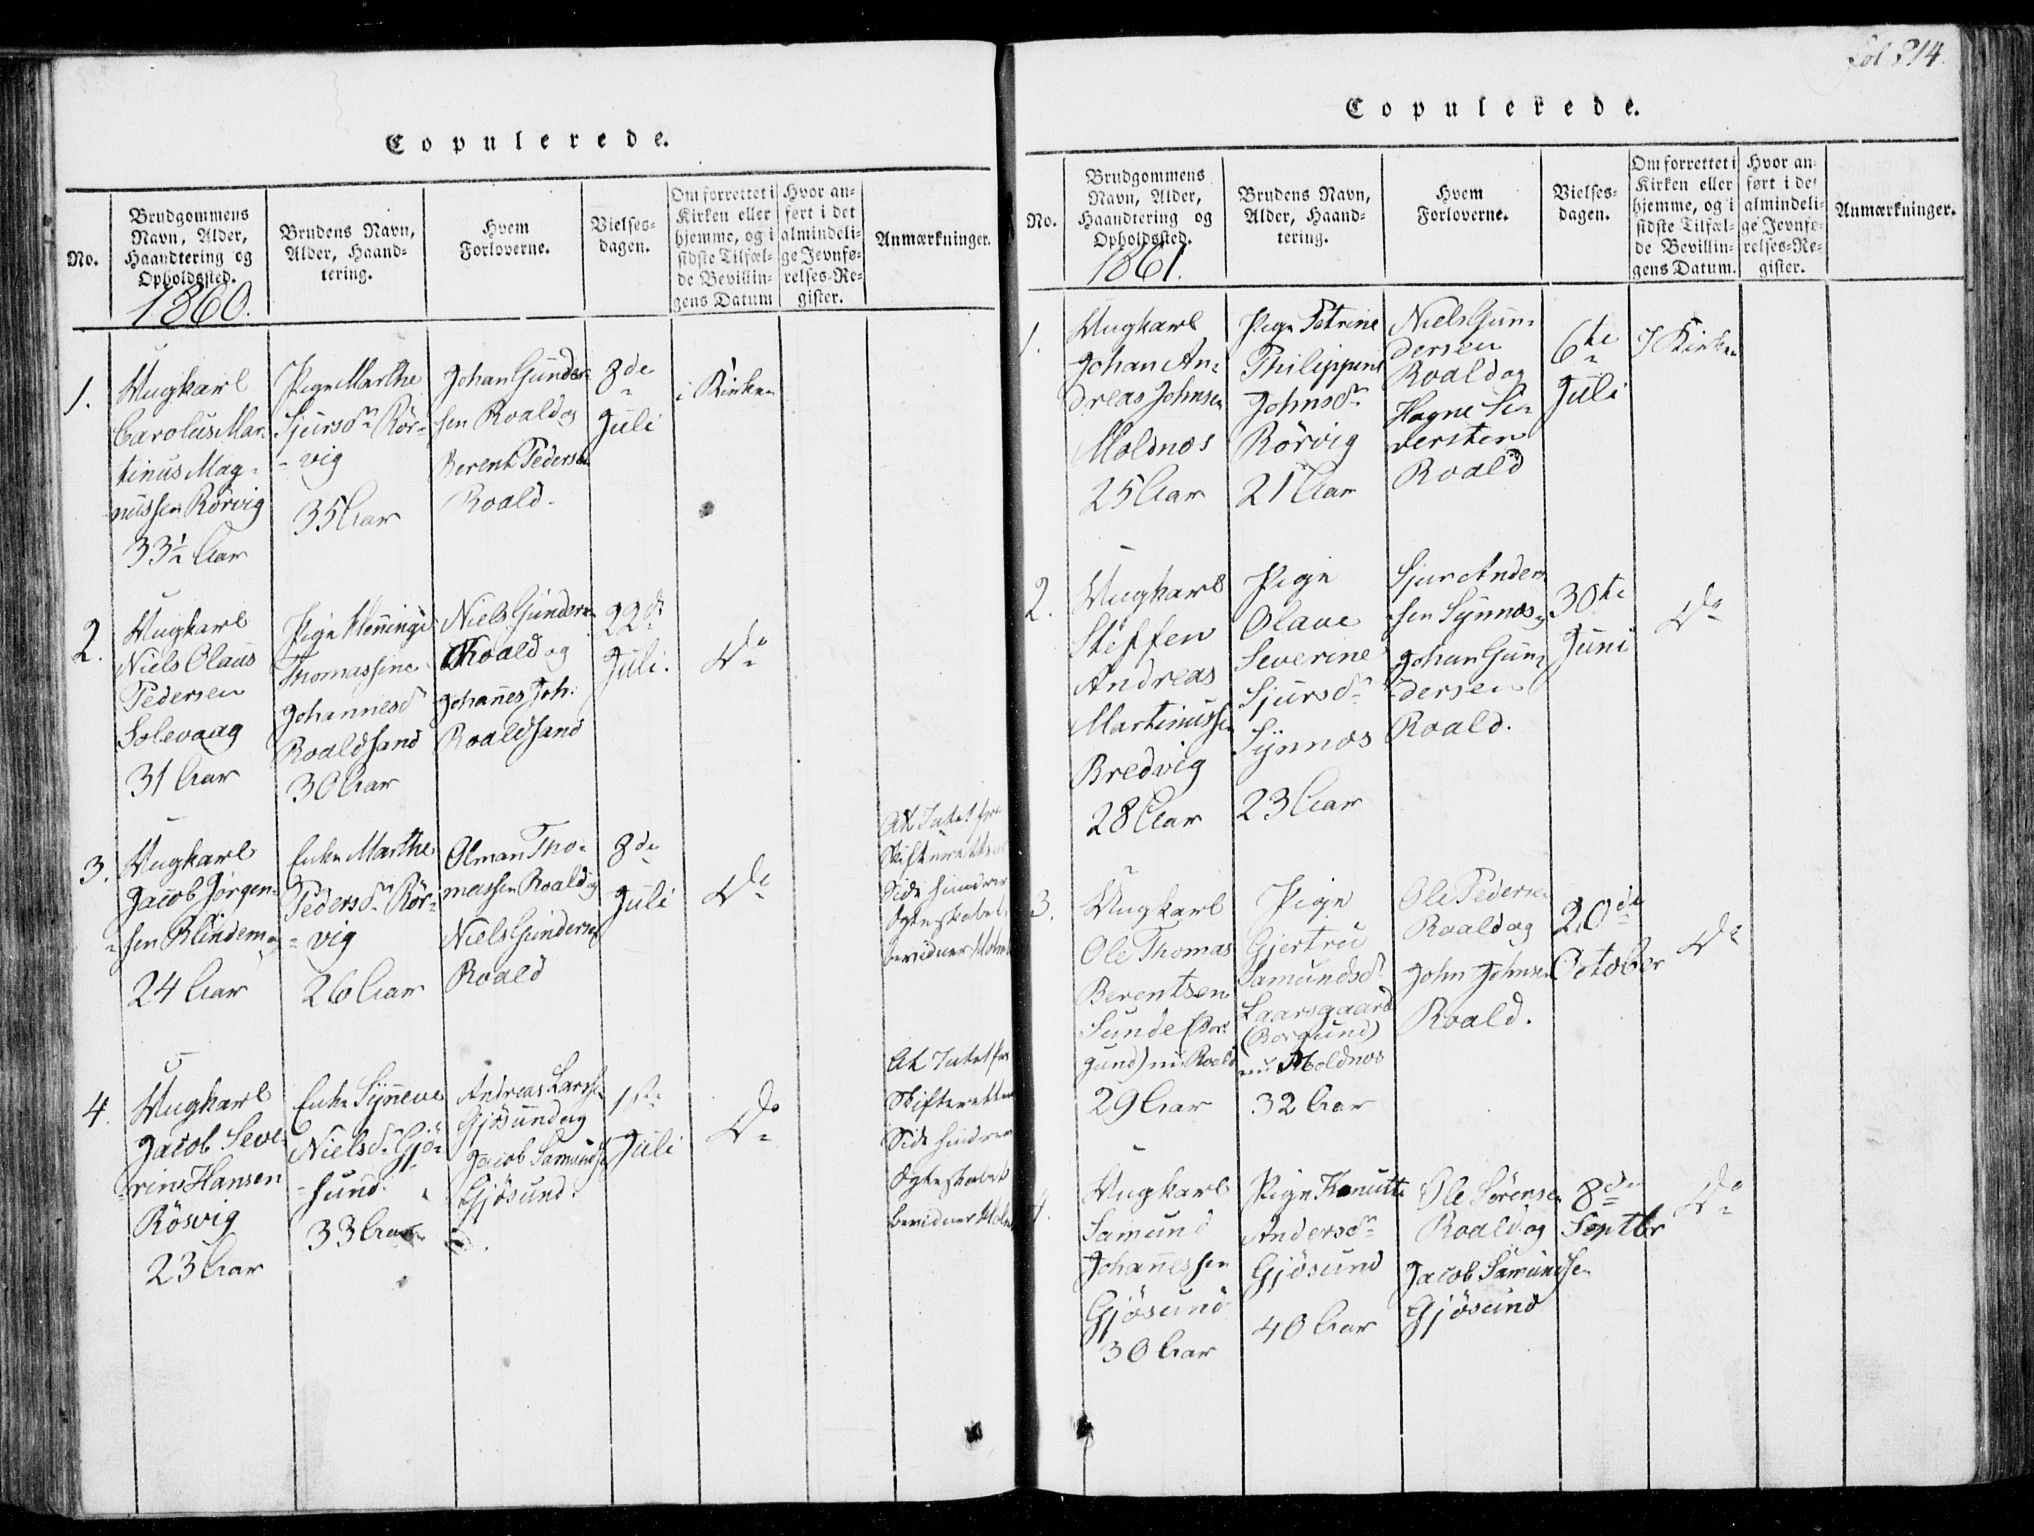 Copulerede.
No.
Brudgommens
Navn, Alder,
Haandtering og
Opholdssted.
Brudens Navn,
Alder, Haand-
tering.
Hvem
Forloverne.
Vielses-
dagen.
Om forrettet i
Kirken eller
hjemme, og i
sidste Tilfæl-
de Bevillin-
gens Datum
Hvor an-
ført i det
almindeli-
ge Jevnfø-
relses-Re-
gister.
Anmærkninger.
1860.
1.
Ungkarl
Carolus Mar-
tinus Mag-
nussen Rörvig
33½ Aar
Pige Marthe
Sjursdr Rör-
vig
35 Aar
Johan Gunder-
sen Roald og
Berent Pedersen
Roald.
8de
Juli
i Kirken
2.
Ungkarl
Niels Olaus
Pedersen
Solevaag
31 Aar
Pige Henninge
Thomassine
Johannesd
Roaldsand
30 Aar
Niels Gundersen
Roald og
Johannes Joh:
Roaldsand
22de
Juli.
Do
3.
Ungkarl
Jacob Jörgen-
sen Blindem
24 Aar
Enke Marthe
Pedersdr Rör-
vig
26 Aar
Olman Tho-
massen Roald og
Niels Gundersen
Roald
8de
Juli
Do
At Intet fra
Skifterettens
Side hindrer
Ægteskabet,
bevidner
4.
Ungkarl
Jacob Seve-
rin Hansen
Rösvig
23 Aar
Enke Synneve
Nielsdr Gjö-
sund.
33 Aar
Andreas Larss.
Gjösund og
Jacob Samundss.
Gjösund.
1ste
Juli
Do
At Intet fra
Skifteretten
Side hindrer
Ægteskabet
bevidner
Fol 214.
Copulerede.
No.
Brudgommens
Navn, Alder,
Haandtering og
Opholdssted.
Brudens Navn,
Alder, Haand-
tering.
Hvem
Forloverne.
Vielses-
dagen.
Om forrettet i
Kirken eller
hjemme, og i
sidste Tilfæl-
de Bevillin-
gens Datum.
Hvor an-
ført i det
almindeli-
ge Jevnfø-
relses-Re-
gister.
Anmærkninger.
1861.
1.
Ungkarl
Johan An-
dreas Johnsen
Moldnæs
25 Aar
Pige Petrine
Philippine
Johnsdr
Rörvig
21 Aar
Niels Gun-
dersen
Roald og
Hagne Si-
versten
Roald
6te
Juli
I Kirken
2.
Ungkarl
Steffen
Andreas
Martinussen
Bredvig
28 Aar
Pige
Olave
Severine
Sjursdr
Synnæs
23 Aar
Sjur Ander-
sen Synnæs
Johan Gun-
dersen
Roald.
30te
Juni
Do
3.
Ungkarl
Ole Thomas
Berentsen
Sunde (Bor-
gund) nu Roald
29 Aar
Pige
Gjertru
Samundsdr
Laarsgaard
(Borgund)
nu Moldnæs
32 Aar
Ole Pedersen
Roald og
John Johnsen
Roald.
20de
October
Do
4.
Ungkarl
Samund
Johannessen
Gjösund
30 Aar
Pige Knutte
Andersdr
Gjösund
40 Aar
Ole Sörensen
Roald og
Jacob Samundsse
Gjösund
8de
Septbr
Do